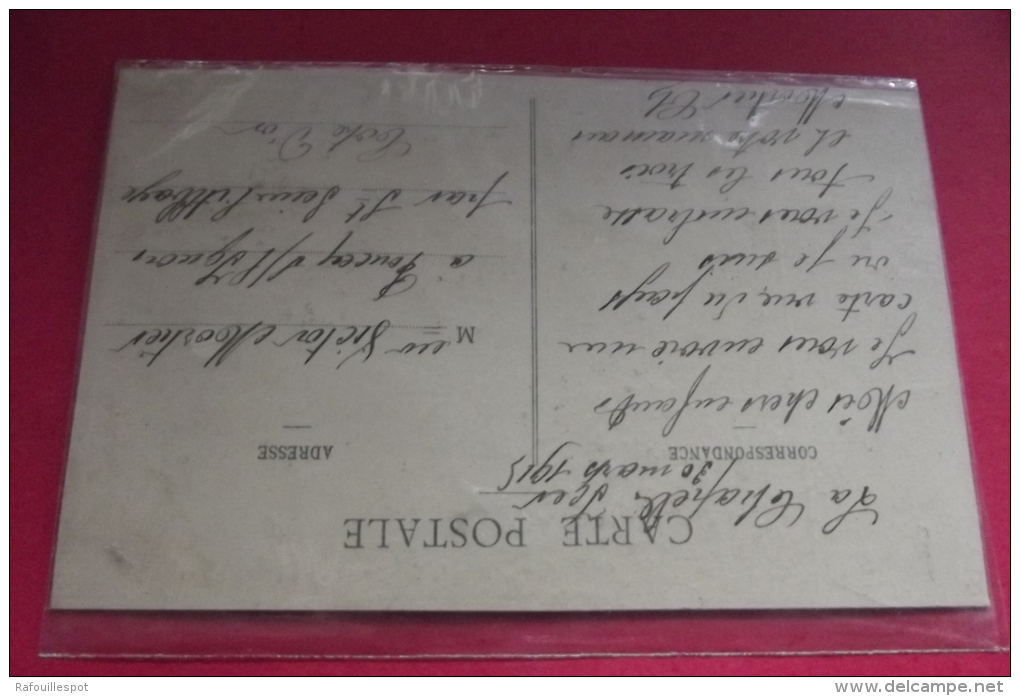 CARTE POSTALE
La Chapelle
30 mars 1915
CORRESPONDANCE
Mes chers enfants
Je vous envoie une
carte vue du pays
ou je suis
Je vous embrasse
tous les trois
et votre maman
Mortier
ADRESSE
M eur Victor Mortier
à Poncey s/ l'Ignon
par St Seine l'abbaye
Côte D'or
Rafouillespot
www.delcampe.net